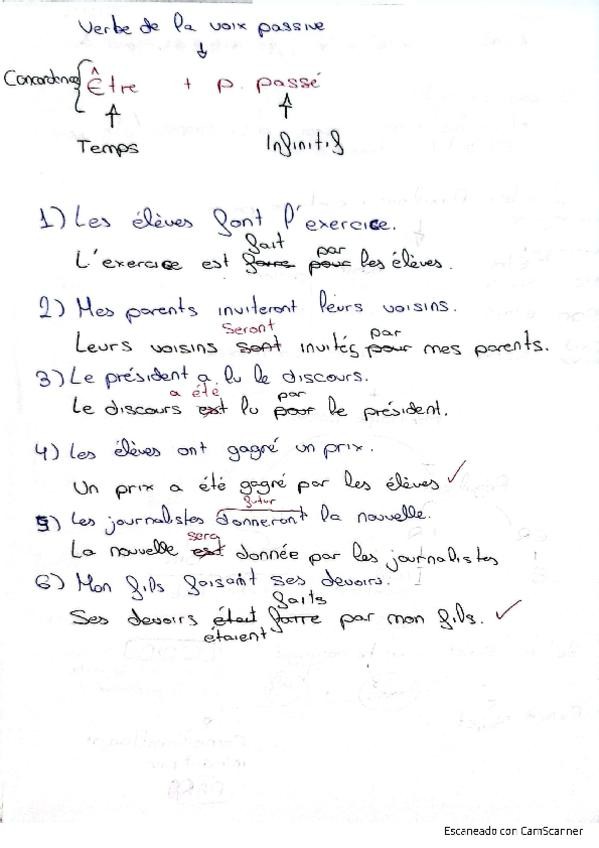 Verbe de la voix passive
↓
Concordence { Être + p. passé
↑ ↑
Temps Infinitif
1) Les élèves font l'exercice.
fait par
L'exercice est faire pour les élèves.
2) Mes parents inviteront leurs voisins.
Seront par
Leurs voisins sont invités pour mes parents.
3) Le président a lu le discours.
a été par
Le discours est lu pour le président.
4) Les élèves ont gagné un prix.
Un prix a été gagné par les élèves ✓
futur
5) Les journalistes donneront la nouvelle.
sera
La nouvelle est donnée par les journalistes
6) Mon fils faisant ses devoirs.
faits
Ses devoirs était faire par mon fils. ✓
étaient
Escaneado con CamScanner